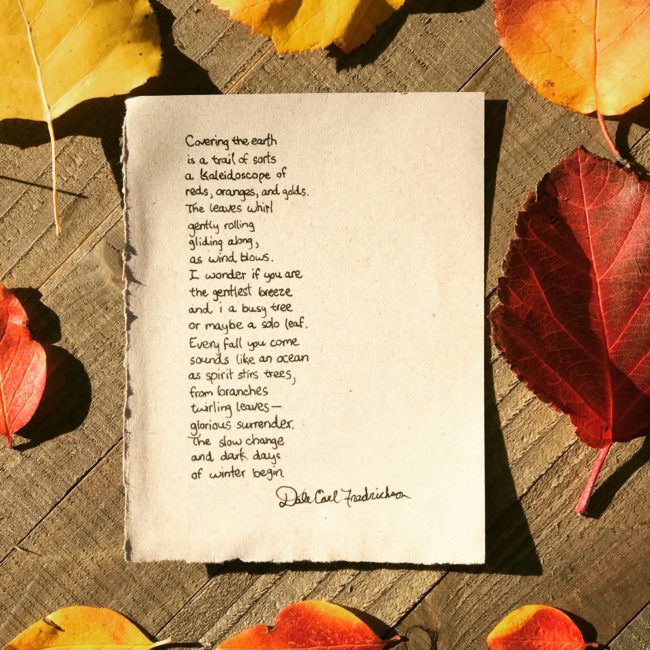 Covering the earth
is a trail of sorts
a kaleidoscope of
reds, oranges, and golds.
The leaves whirl
gently rolling
gliding along,
as wind blows.
I wonder if you are
the gentlest breeze
and i a busy tree
or maybe a solo leaf.
Every fall you come
sounds like an ocean
as spirit stirs trees,
from branches
twirling leaves—
glorious surrender.
The slow change
and dark days
of winter begin
Dale Carl Fredrickson